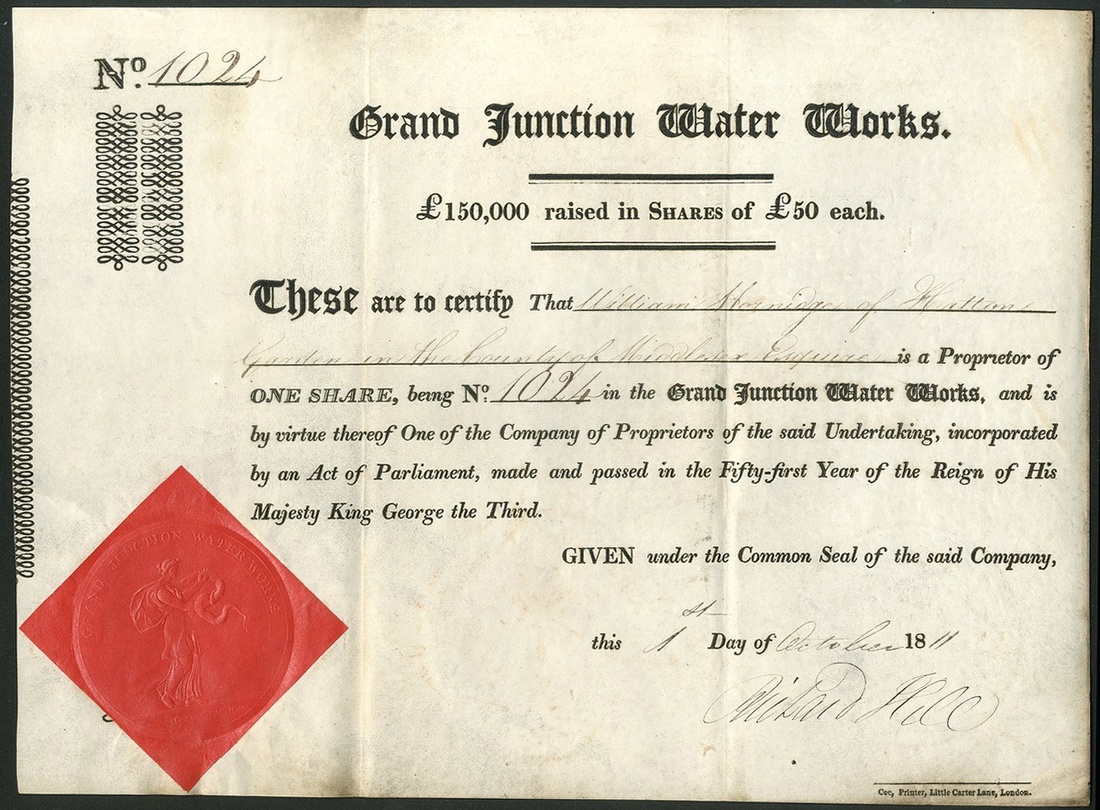 No. 1024
Grand Junction Water Works.
£150,000 raised in SHARES of £50 each.
These are to certify That William Hornidge of Hatton
Garden in the County of Middlesex Esquire is a Proprietor of
ONE SHARE, being No. 1024 in the Grand Junction Water Works, and is
by virtue thereof One of the Company of Proprietors of the said Undertaking, incorporated
by an Act of Parliament, made and passed in the Fifty-first Year of the Reign of His
Majesty King George the Third.
GRAND JUNCTION WATER WORKS
GIVEN under the Common Seal of the said Company,
this 1st Day of October 1811
Coe, Printer, Little Carter Lane, London.